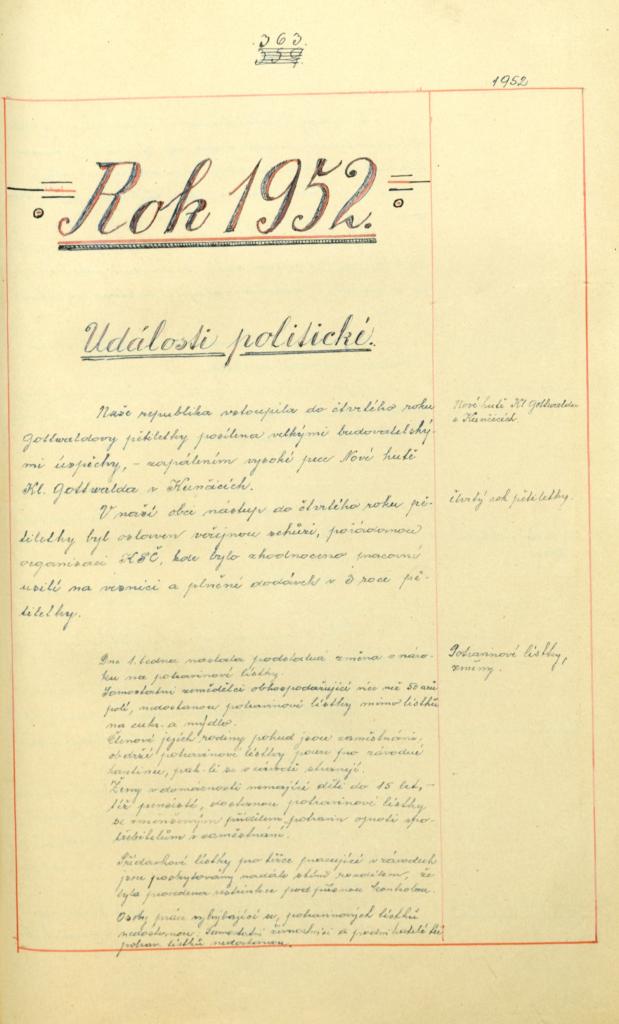 363.
359.
1952
Rok 1952.
Události politické.
Naše republika vstoupila do čtvrtého roku
Gottwaldovy pětiletky posílena velkými budovatelský-
mi úspěchy, – zapálením vysoké pece Nové hutě
Kl. Gottwalda v Kunčicích.
Nové hutě Kl. Gottwalda
v Kunčicích
V naší obci nástup do čtvrtého roku pě-
tiletky byl osloven veřejnou schůzí, pořádanou
čtvrtý rok pětiletky.
organisací KSČ, kde bylo zhodnoceno pracovní
úsilí na vesnici a plnění dodávek v 3 roce pě-
tiletky.
Dne 1. ledna nastala podstatná změna o náro-
ku na potravinové lístky.
Potravinové lístky,
změny.
Samostatní zemědělci obhospodařující více než 50 arů
polí, nedostanou potravinové lístky mimo lístků
na cukr a mýdlo.
Členové jejich rodiny pokud jsou zaměstnáni,
obdrží potravinové lístky pouze pro závodní
kantinu, pak-li se v závodě stravují.
Ženy v domácnosti nemající děti do 15 let,
též pensisté, dostanou potravinové lístky
se zmenšeným přídělem potravin oproti spo-
třebitelům v zaměstnání.
Přídavkové lístky pro těžce pracující v závodech
jsou poskytovány nadále s tím rozdílem, že
byla provedena restrikce pod přísnou kontrolou.
Osoby práci vyhýbající se, potravinových lístků
nedostanou. Samostatní živnostníci a podnikatelé též
potrav. lístků nedostanou.